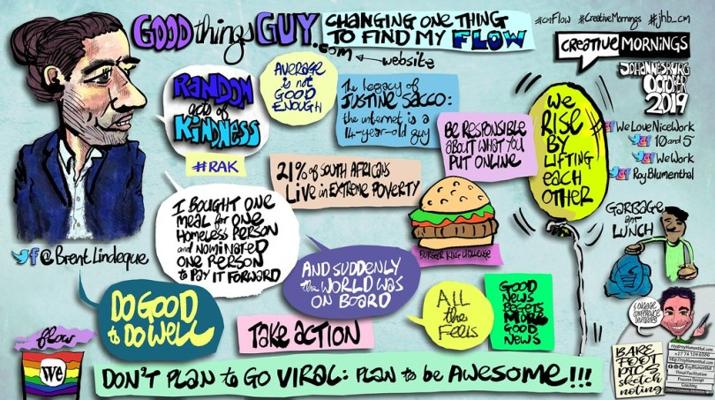 GOOD things GUY
.com ← website
CHANGING ONE THING
TO FIND MY FLOW
#cmFlow #CreativeMornings #jhb_cm
CREATIVEMORNINGS
JOHANNESBURG
OCTOBER
2019
WeLoveNiceWork
10and5
WeWork
RoyBlumenthal
RANDOM
act of
KINDNESS
#RAK
AVERAGE
is not
GOOD
ENOUGH
The legacy of
JUSTINE SACCO:
the internet is a
14-year-old guy
BE RESPONSIBLE
ABOUT WHAT YOU
PUT ONLINE
WE
RISE
BY
LIFTING
EACH
OTHER
21% of SOUTH AFRICANS
LIVE in EXTREME POVERTY
I BOUGHT ONE
MEAL for ONE
HOMELESS PERSON
and NOMINATED
ONE PERSON
to PAY IT FORWARD
BURGER KING CHALLENGE
GARBAGE
LUNCH
@BrentLindeque
AND SUDDENLY
the WORLD WAS
ON BOARD
DO GOOD
to DO WELL
TAKE ACTION
ALL
the
FEELS
GOOD
NEWS
BEGETS
MORE
GOOD
NEWS
flow
we
DON'T PLAN to GO VIRAL: PLAN to be AWESOME!!!
BARE
FOOT
PICS
sketch
noting